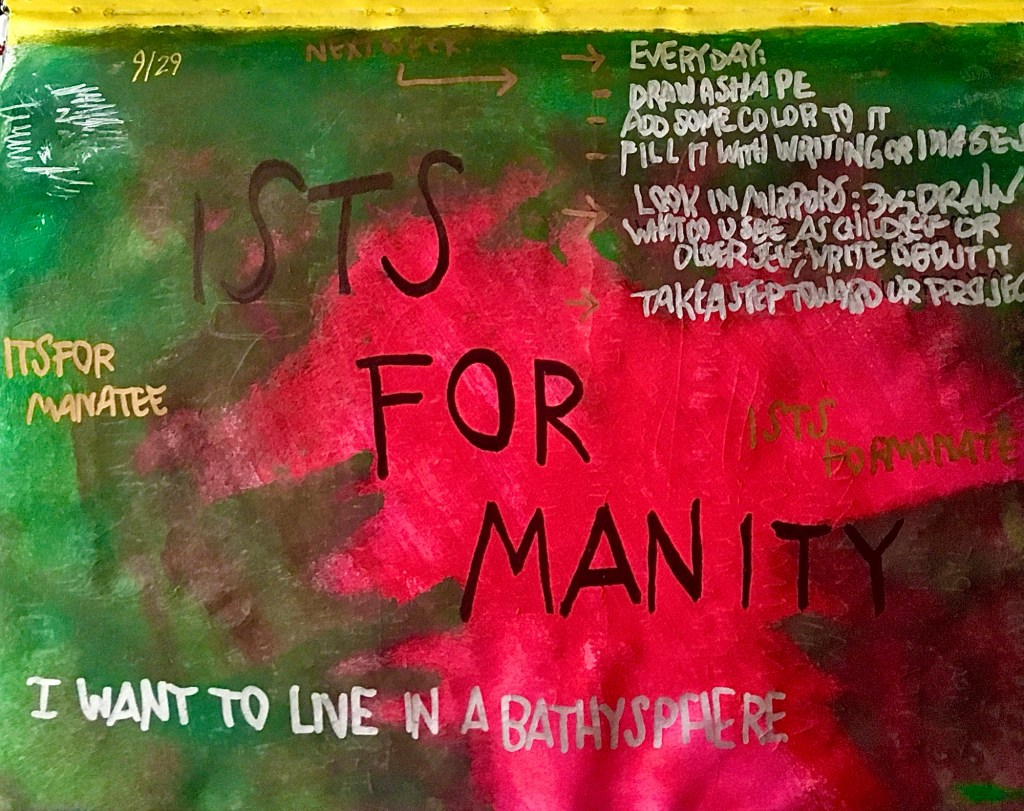 9/29
NEXT WEEK:
EVERYDAY:
DRAW A SHAPE
ADD SOME COLOR TO IT
FILL IT WITH WRITING OR IMAGES
LOOK IN MIRRORS:
WHAT DO U SEE AS CHILD OR
OLDER SELF, WRITE ABOUT IT
TAKE A STEP TOWARD UR PROJEC
ISTS
FOR
MANITY
ITS FOR
MANATEE
ISTS
FORMANATE
I WANT TO LIVE IN A BATHYSPHERE